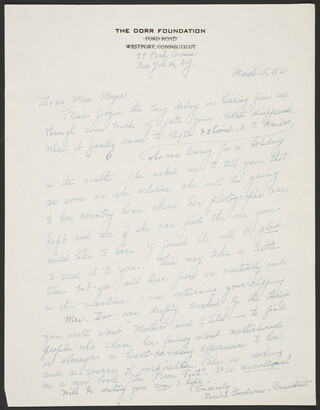 THE DORR FOUNDATION
FORD ROAD
WESTPORT, CONNECTICUT
99 Park Avenue
New York 16, N.Y.
March 15, 1961
Dear Mrs. Meyer:
Please forgive the long delay in hearing from us.
Through some trick of fate your letter disappeared.
When it finally came to light I showed it to Mrs. Dorr
who was leaving for a holiday
in the south. She asked me to tell you that
as soon as she returns she will be going
to her country home where her photographs are
kept and see if she can find the one you
would like to have. If found she will be glad
to send it to you. This may take a little
time but you will hear from us eventually and
in the meantime I am returning your clipping.
Mrs. Dorr was deeply touched by the things
you wrote about "Mother and Child" — to find
people who share her feeling about motherhood
is always a heart-warming experience to her
and a source of inspiration. She is working
on a new book, "The Bare Feet". It is marvellous!
Will be writing you soon I hope.
Sincerely,